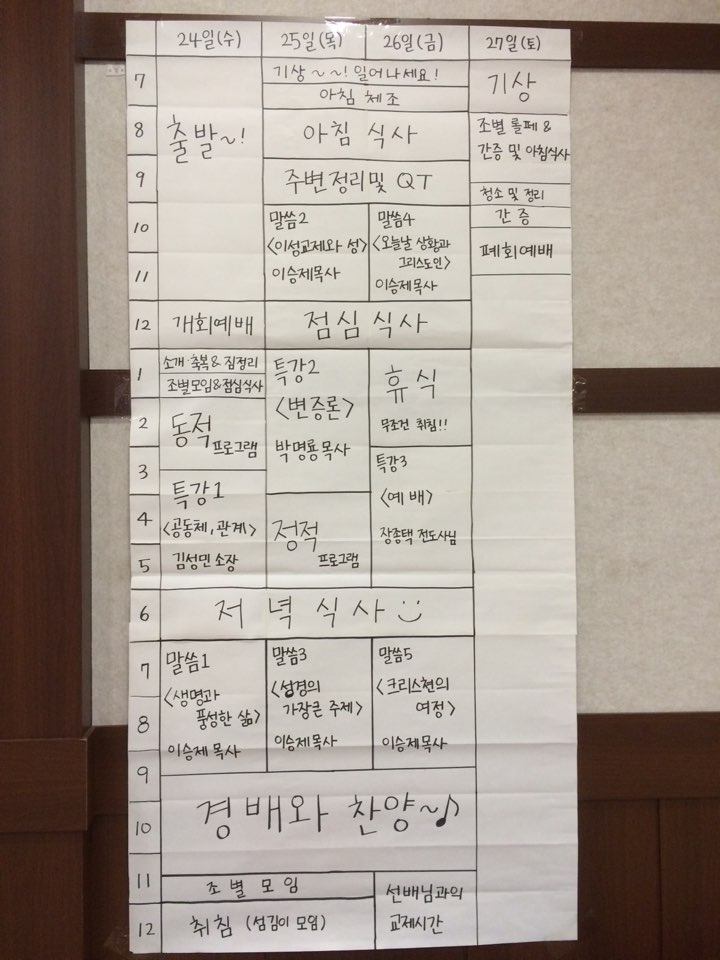 24일(수) 25일(목) 26일(금) 27일(토)
7
기상~~! 일어나세요!
기상
아침 체조
8
출발~!
아침 식사
조별 롤페 &
간증 및 아침식사
9
주변정리및 QT
청소 및 정리
10
말씀2
<이성교제와 성>
이승제목사
말씀4
<오늘날 상황과
그리스도인>
이승제목사
간증
11
폐회예배
12
개회예배
점심식사
1
소개·축복& 짐정리
조별모임&점심식사
특강2
<변증론>
박명룡목사
휴식
무조건 취침!!
2
동적
프로그램
3
특강1
<공동체, 관계>
김성민 소장
특강3
<예배>
장종택 전도사님
4
정적
프로그램
5
6
저녁식사
7
말씀1
<생명과
풍성한 삶>
이승제 목사
말씀3
<성경의
가장큰 주제>
이승제목사
말씀5
<크리스천의
여정>
이승제목사
8
9
10
경배와 찬양~♪
11
조별모임
선배님과의
교제시간
12
취침 (섬김이 모임)